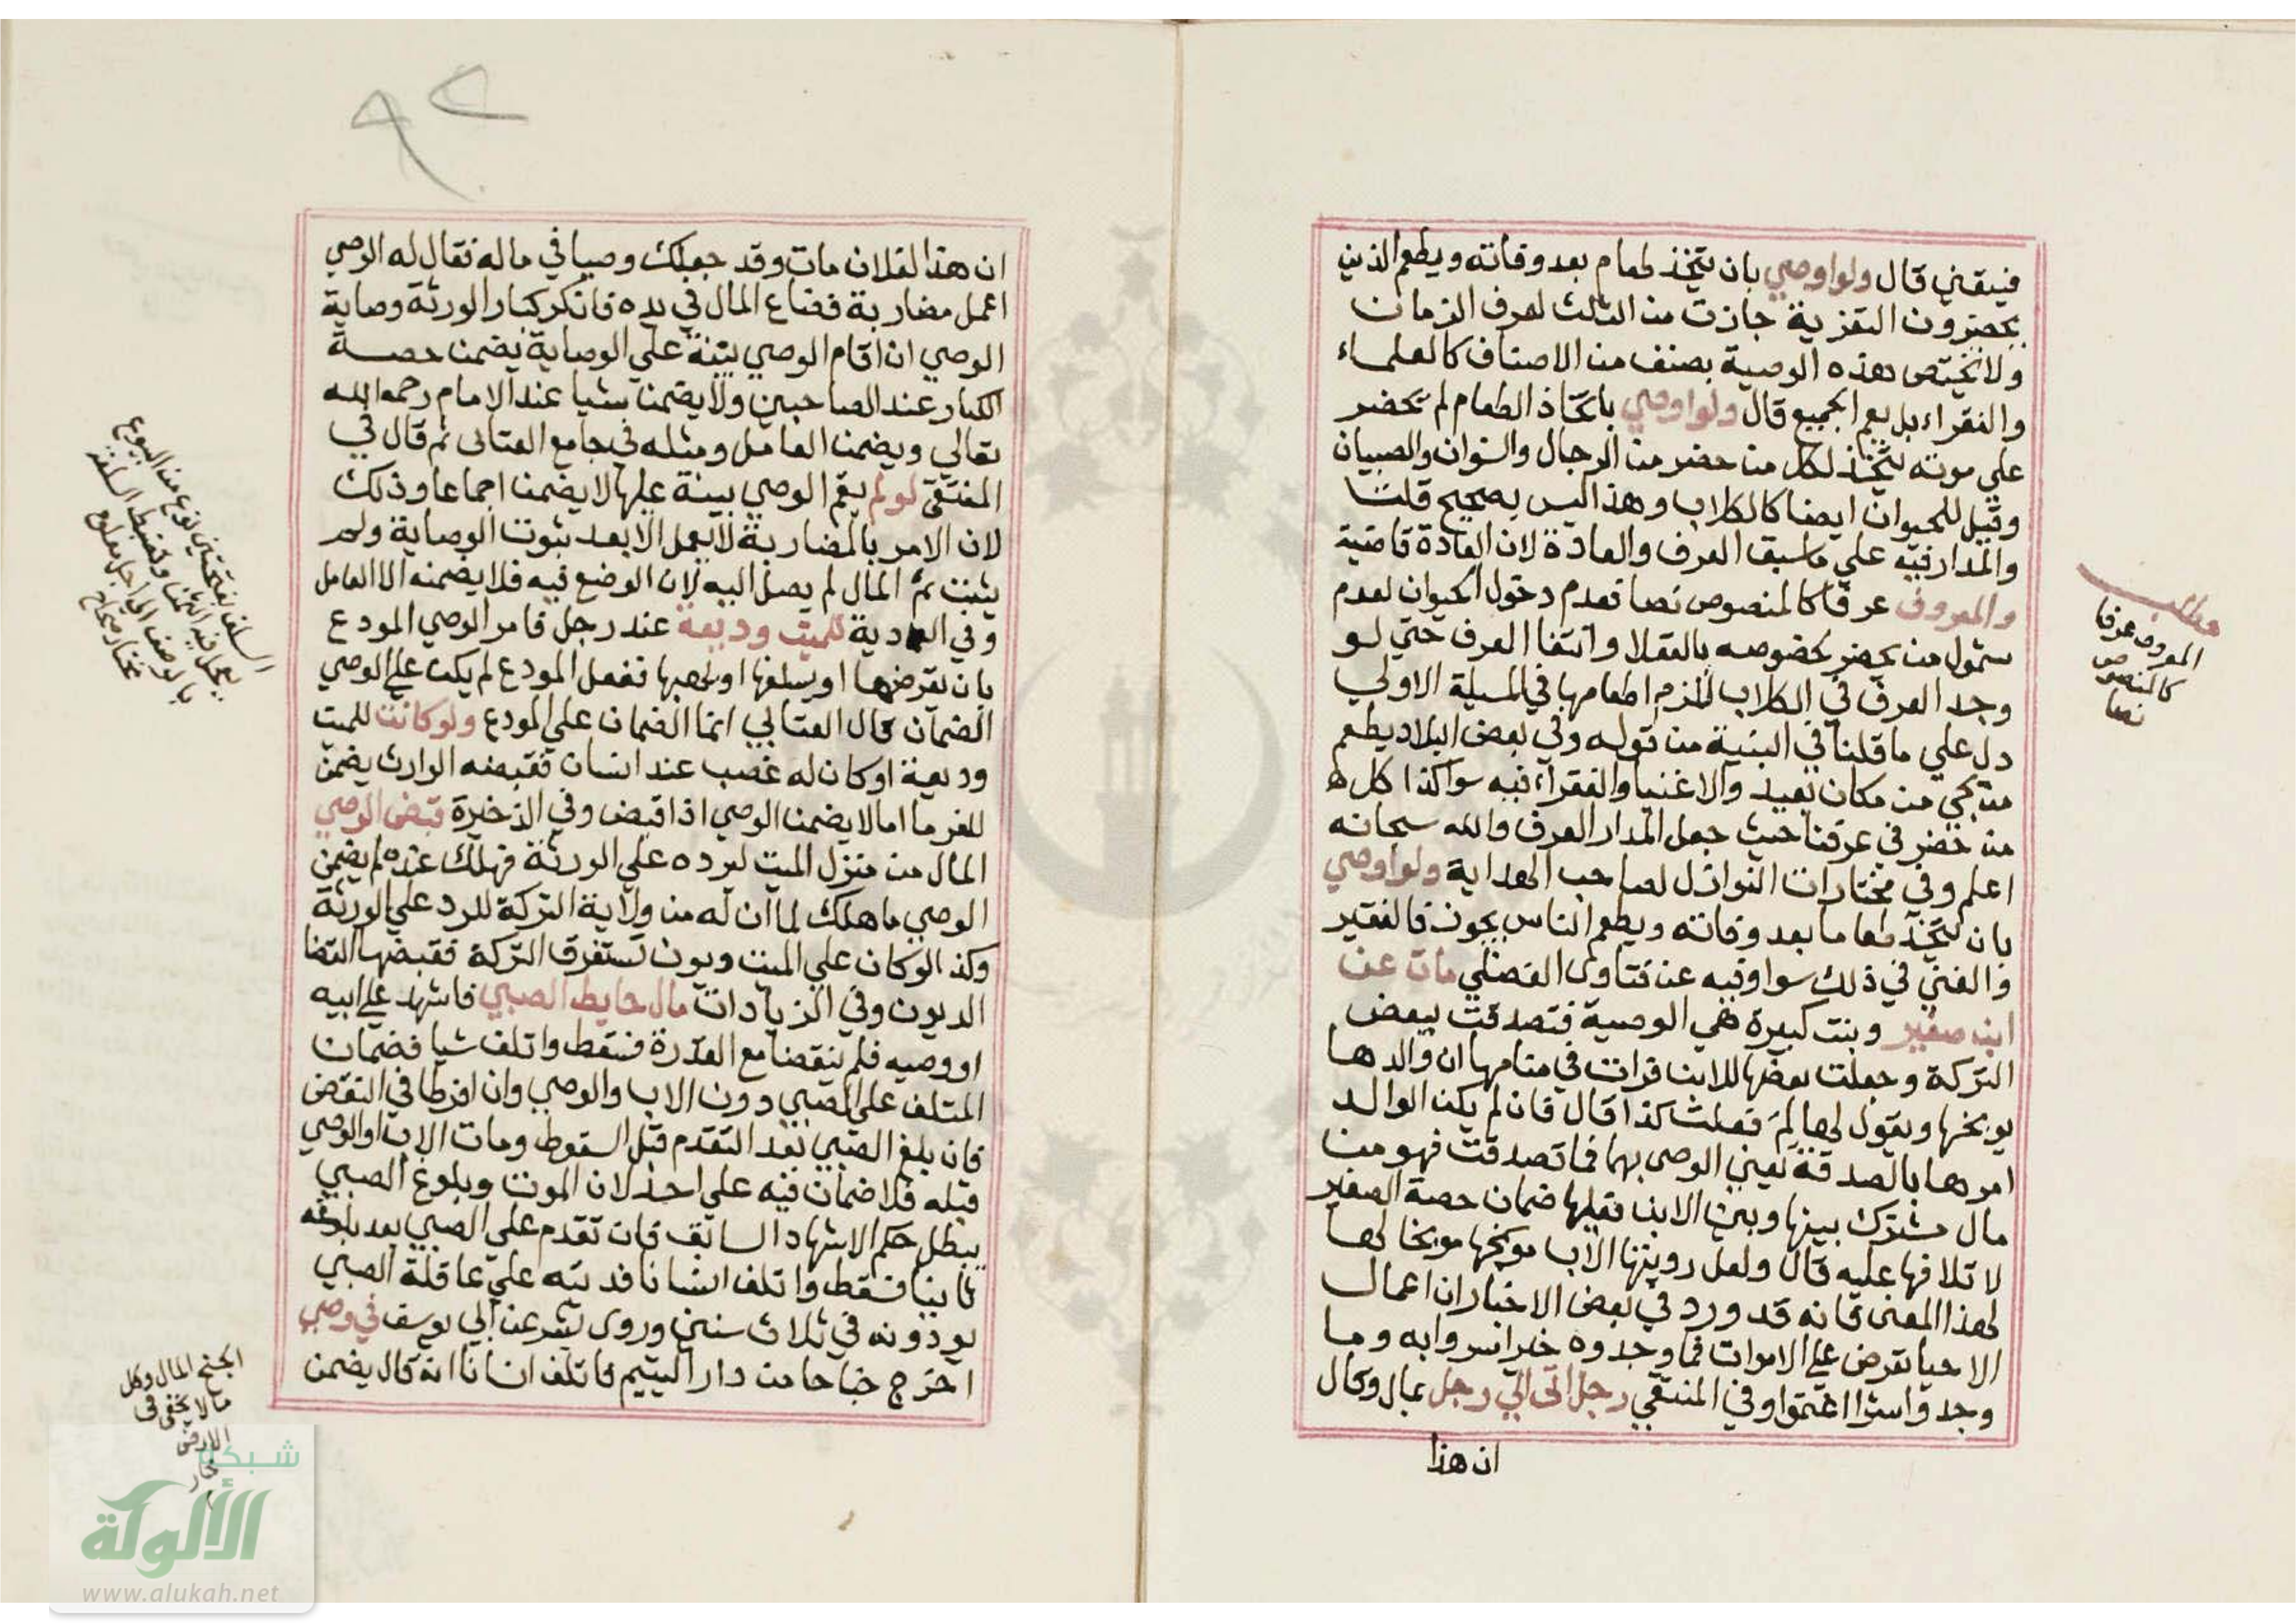 فيبقي قال ولو اوصي بان يتخذ طعام بعد وفاته ويطعم الذين
يحضرون التعزية جازت من الثلث لعرف الزمان
ولا تختص هذه الوصية بصنف من الاصناف كالعلماء
والفقراء بل يعم الجميع قال ولو اوصي باتخاذ الطعام لم تحضر
علي موته يتخذ لكل من حضر من الرجال والنسوان والصبيان
وقيل للحيوان ايضا كالكلاب وهذا ليس بصحيح قلت
والمدار فيه علي ما سبق العرف والعادة لان العادة قاضية
والمعروف عرفا كالمنصوص نصا فعدم دخول الحيوان لعدم
شمول من يحضر بخصوصه بالعقلا وانتفا العرف حتي لو
وجد العرف في الكلاب للزم اطعامها في المسيلة الاولي
دل علي ما قلنا في البنية من قوله وفي بعض البلاد يطعم
من يجي من مكان بعيد والاغنيا والفقراء فيه سوا كذا كل
من حضر في عرفنا حيث جعل المدار العرف والله سبحانه
اعلم وفي مختارات النوازل لصاحب الهداية ولو اوصي
بان يتخذ طعاما بعد وفاته ويطعم الناس يجوز فالفقير
والغني في ذلك سوا وفيه عن فتاوي الفضلي مات عن
ابن صغير وبنت كبيرة هي الوصية فتصدقت ببعض
التركة وجعلت بعضها للابن فرات في منامها ان والدها
يوبخها ويقول لها لم فعلت كذا قال فان لم يكن الوالد
امرها بالصدقة بعين الوصي بها فما تصدقت فهو من
مال مشترك بينها وبين الابن فعليها ضمان حصة الصغير
لاتلافها عليه قال ولعل رويتها الاب موبخها موبخا لها
لهذا المعنى فانه قد ورد في بعض الاخبار ان اعمال
الاحيا تعرض علي الاموات فما وجدوه خيرا سروا به وما
وجدوا شرا اغتموا وفي المنتقي رجل اتى الي رجل بمال وقال
ان هذا
مطلب
المعروف عرفا
كالمنصوص
نصا
ان هذا لفلان مات وقد جعلك وصيا في ماله فقال له الوصي
اعمل مضاربة فضاع المال في يده فانكر كبار الورثة وصاية
الوصي ان اقام الوصي بينة علي الوصاية يضمن حصة
الكبار عند الصاحبين ولا يضمن شيا عند الامام رحمه الله
تعالي ويضمن العامل ومثله في جامع الفتاى ثم قال في
المنتقى لو لم يقم الوصي بينة عليها لا يضمن اجماعا وذلك
لان الامر بالمضاربة لا يعمل الا بعد ثبوت الوصاية ولم
يثبت ثم المال لم يصل اليه لان الوضع فيه فلا يضمنه الا العامل
وفي العادية للميت وديعة عند رجل فامر الوصي المودع
بان يقرضها او يسلفها او يهبها ففعل المودع لم يكن علي الوصي
الضمان قال العتابي انما الضمان علي المودع ولو كانت للميت
وديعة او كان له غصب عند انسان فقبضه الوارث يضمن
للغرما اما لا يضمن الوصي اذا قبض وفي الذخيرة قبض الوصي
المال من منزل الميت ليرده علي الورثة فهلك عنده لم يضمن
الوصي ما هلك لما ان له من ولاية التركة للرد علي الورثة
وكذا لو كان علي الميت ديون تستغرق التركة فقبضها لقضا
الديون وفي الزيادات مال حايط الصبي فاشهد علي ابيه
او وصيه فلم ينقضا مع القدرة فسقط واتلف شيا فضمان
المتلف علي الصبي دون الاب والوصي وان افرطا في النقض
فان بلغ الصبي بعد التقدم قبل السقوط ومات الاب او الوصي
قبله فلا ضمان فيه علي احد لان الموت وبلوغ الصبي
يبطل حكم الاشهاد السابق فان تقدم علي الصبي بعد بلوغه
ثانيا فسقط واتلف انسانا فديته علي عاقلة الصبي
يودونه في ثلاث سنين وروي بشر عن ابي يوسف في وصي
اخرج جناحا من دار اليتيم فاتلف انسانا انه قال يضمن
السلف بفتحتين نوع من البيوع
يعجل فيه الثمن وتضبط السلعة
بالوصف الي اجل معلوم
مختار صحاح
شبكة
الألوكة
www.alukah.net